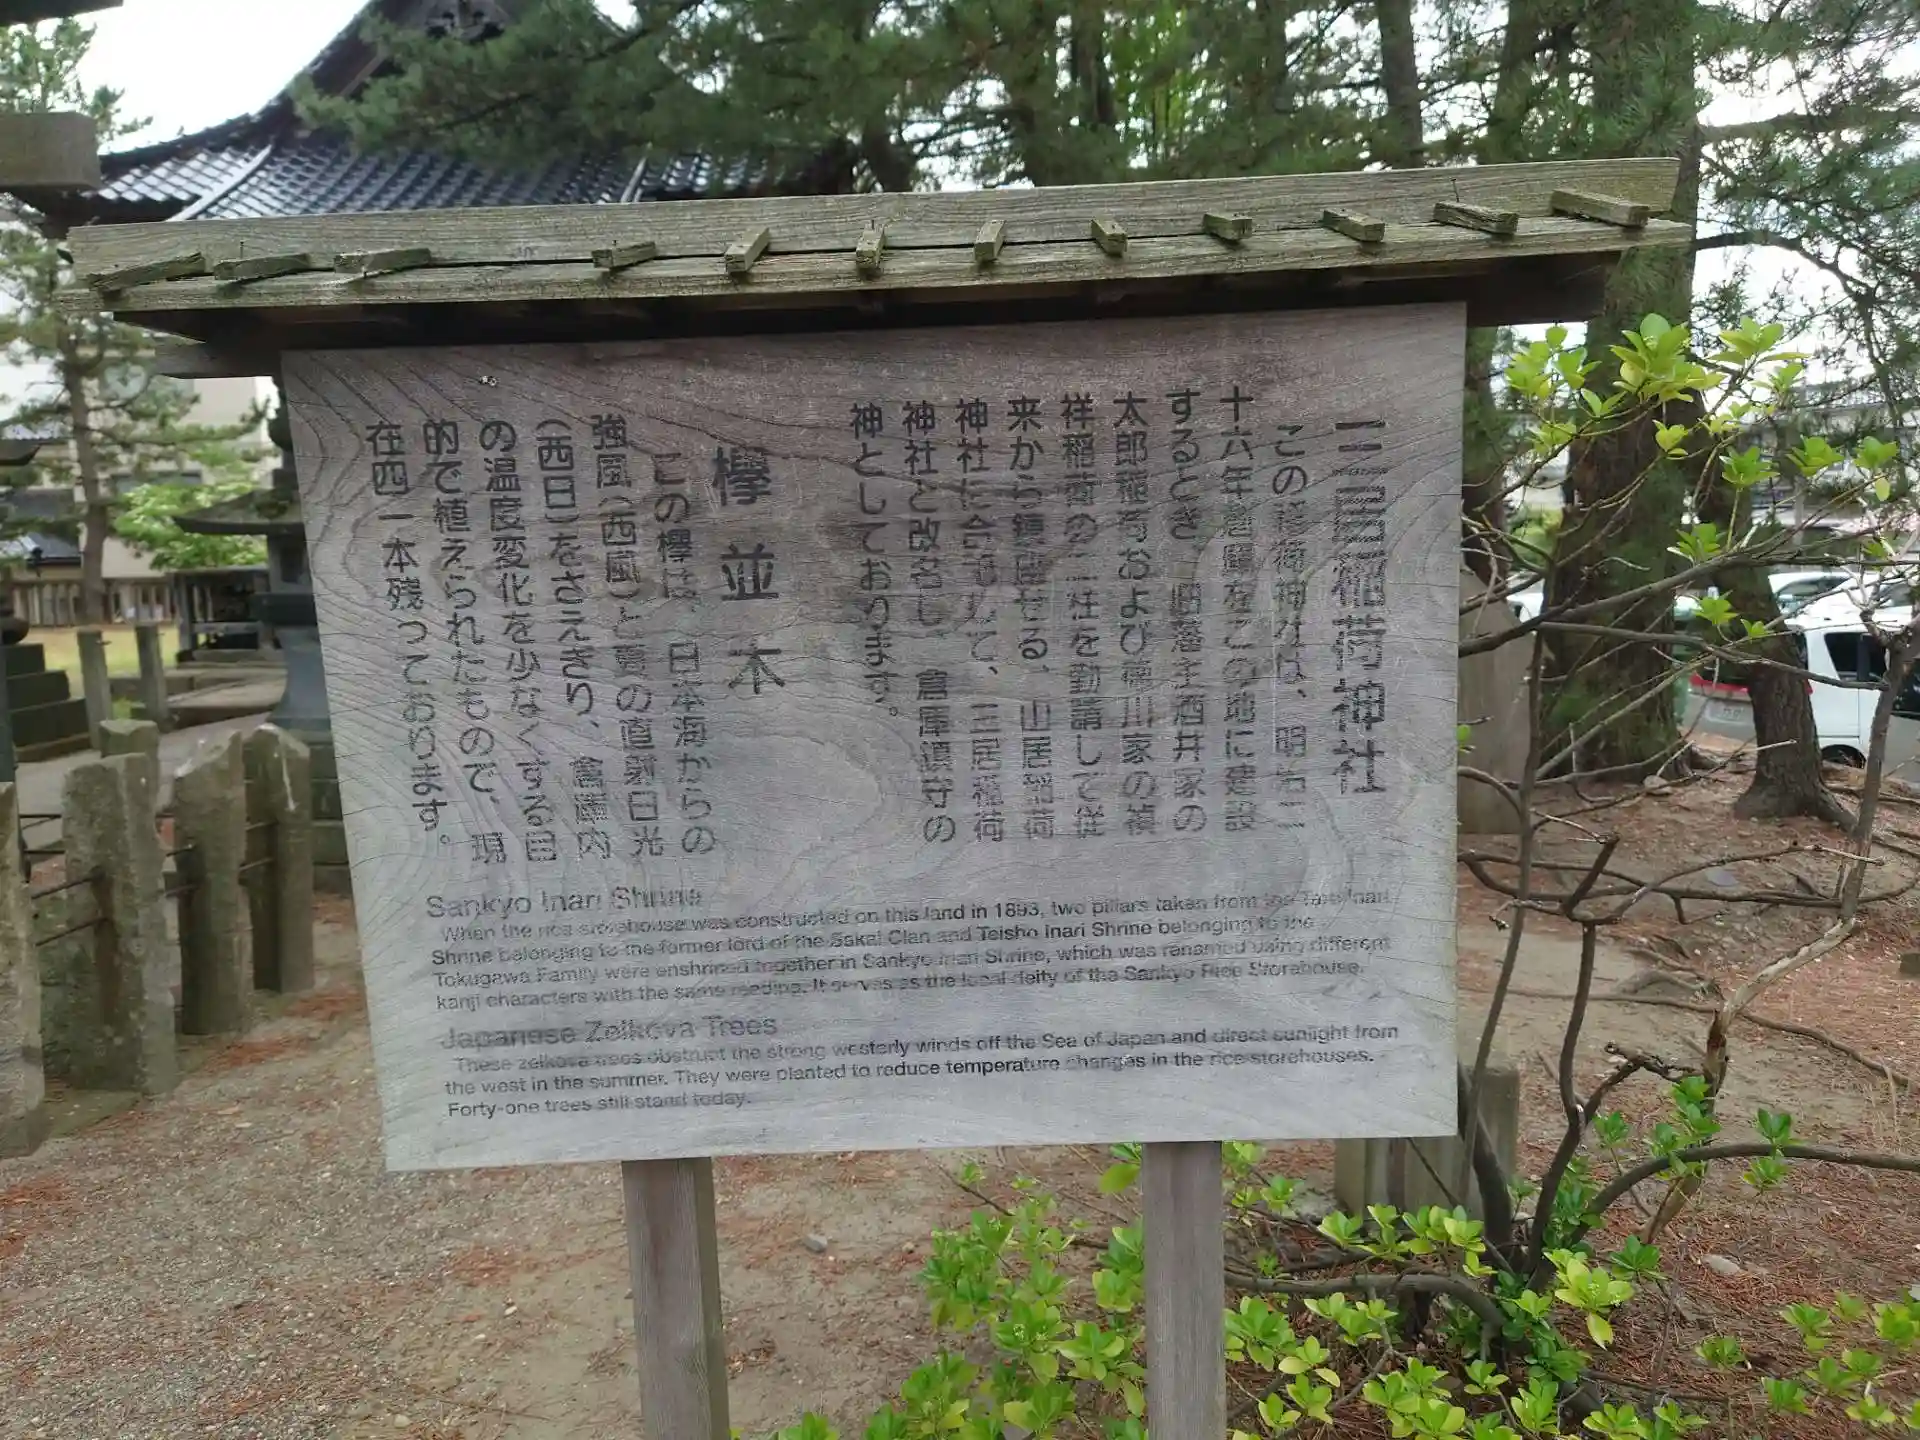 三居稲荷神社
この稲荷神社は、明治二
十六年倉庫をこの地に建設
するとき、旧藩主酒井家の
太郎稲荷および徳川家の禎
祥稲荷の二社を勧請して従
来から鎮座せる、山居稲荷
神社に合祀して、三居稲荷
神社と改名し、倉庫鎮守の
神としております。
欅並木
この欅は、日本海からの
強風(西風)と夏の直射日光
(西日)をさえぎり、倉庫内
の温度変化を少なくする目
的で植えられたもので、現
在四一本残っております。
Sankyo Inari Shrine
When the rice storehouse was constructed on this land in 1893, two pillars taken from the Taro Inari
Shrine belonging to the former lord of the Sakai Clan and Teisho Inari Shrine belonging to the
Tokugawa Family were enshrined together in Sankyo Inari Shrine, which was renamed using different
kanji characters with the same reading. It serves as the local deity of the Sankyo Rice Storehouse.
Japanese Zelkova Trees
These zelkova trees obstruct the strong westerly winds off the Sea of Japan and direct sunlight from
the west in the summer. They were planted to reduce temperature changes in the rice storehouses.
Forty-one trees still stand today.